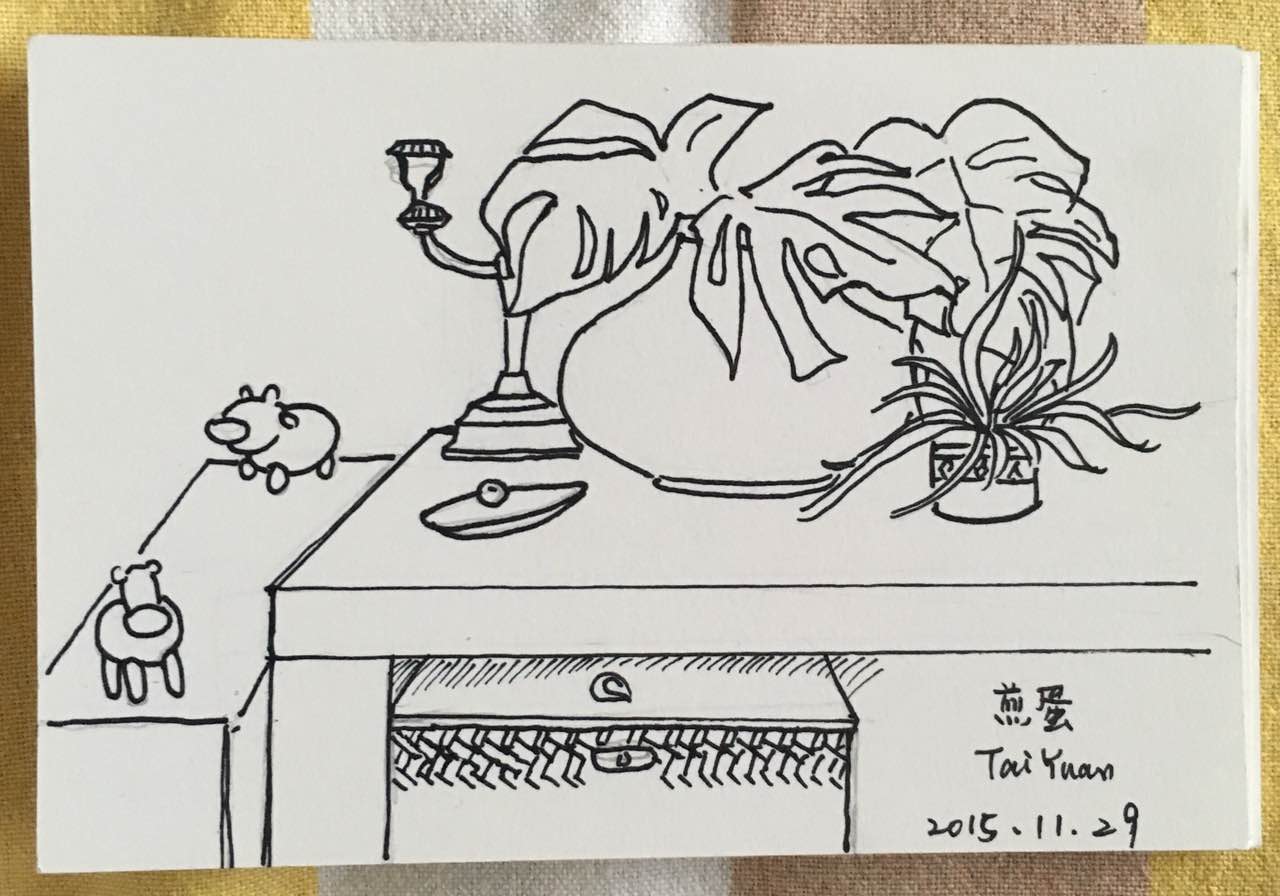 煎蛋
Tai Yuan
2015.11.29